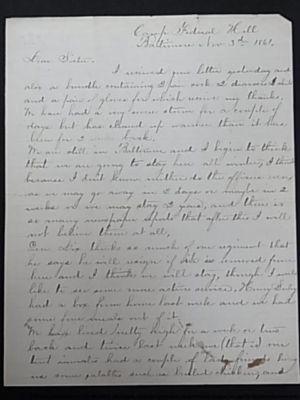 Camp Federal Hill
Baltimore Nov. 3rd 1861.
Dear Sister.
I received your letter yesterday and
also a bundle containing 2 pair sock 2 drawers 1 shirt
and a pair of gloves for which receive my thanks,
We have had a very severe storm for a couple of
days but has cleared up warmer than it has
been for a week back.
We are still in Baltimore and I begin to think
that we are going to stay here all winter, I think
because I dont know neither do the officers even,
as we may go away in 2 days or maybe in 2
weeks or we may stay 2 years, and there is
so many newspaper reports that after this I will
not believe them at all,
Gen Dix thinks so much of our regiment that
he says he will resign if it is removed from
here and I think we will stay, though I would
like to see some more active service, Henry
had a box from home last week and we had
some fine treats out of it.
We have lived pretty high for a week or two
back and twice last week one that is our
tent inmates had a couple of lady friends bring
us some eatables such as broiled chicken, and